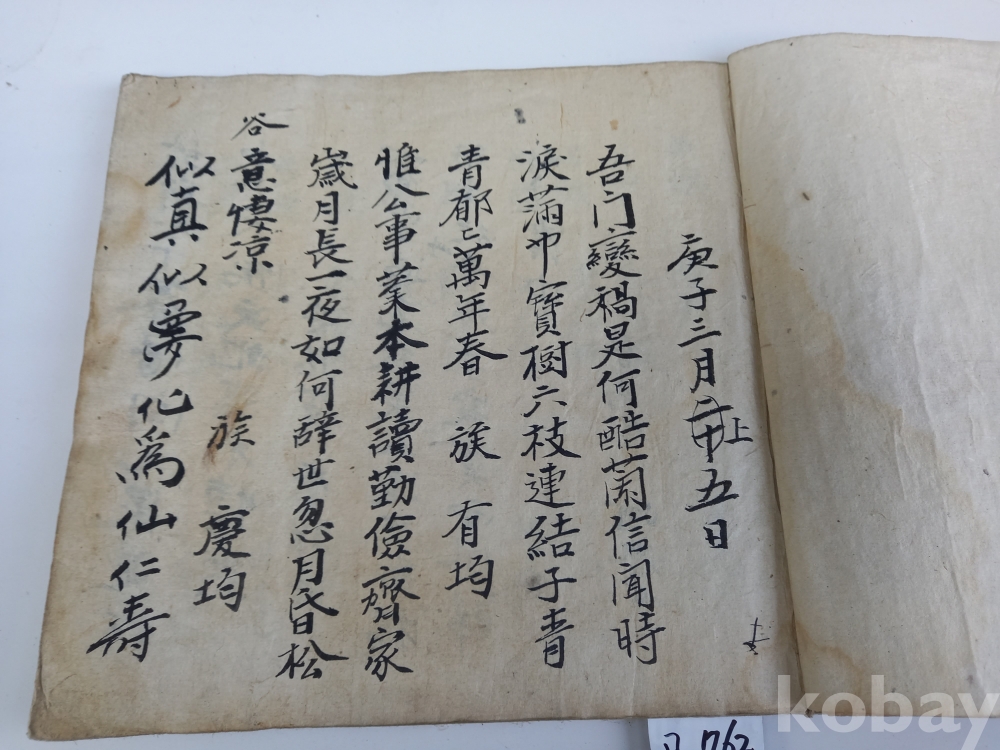 庚子三月二十五日
上
吾门變禍是何酷蘭信聞時
淚蒲巾寶樹六枝連結子青
青郁〻萬年春 族 有均
惟公事業本耕讀勤儉齊家
歲月長一夜如何辞世忽月昏松
谷
意悽凉 族 慶均
似真似夢化爲仙仁壽
kobay
762